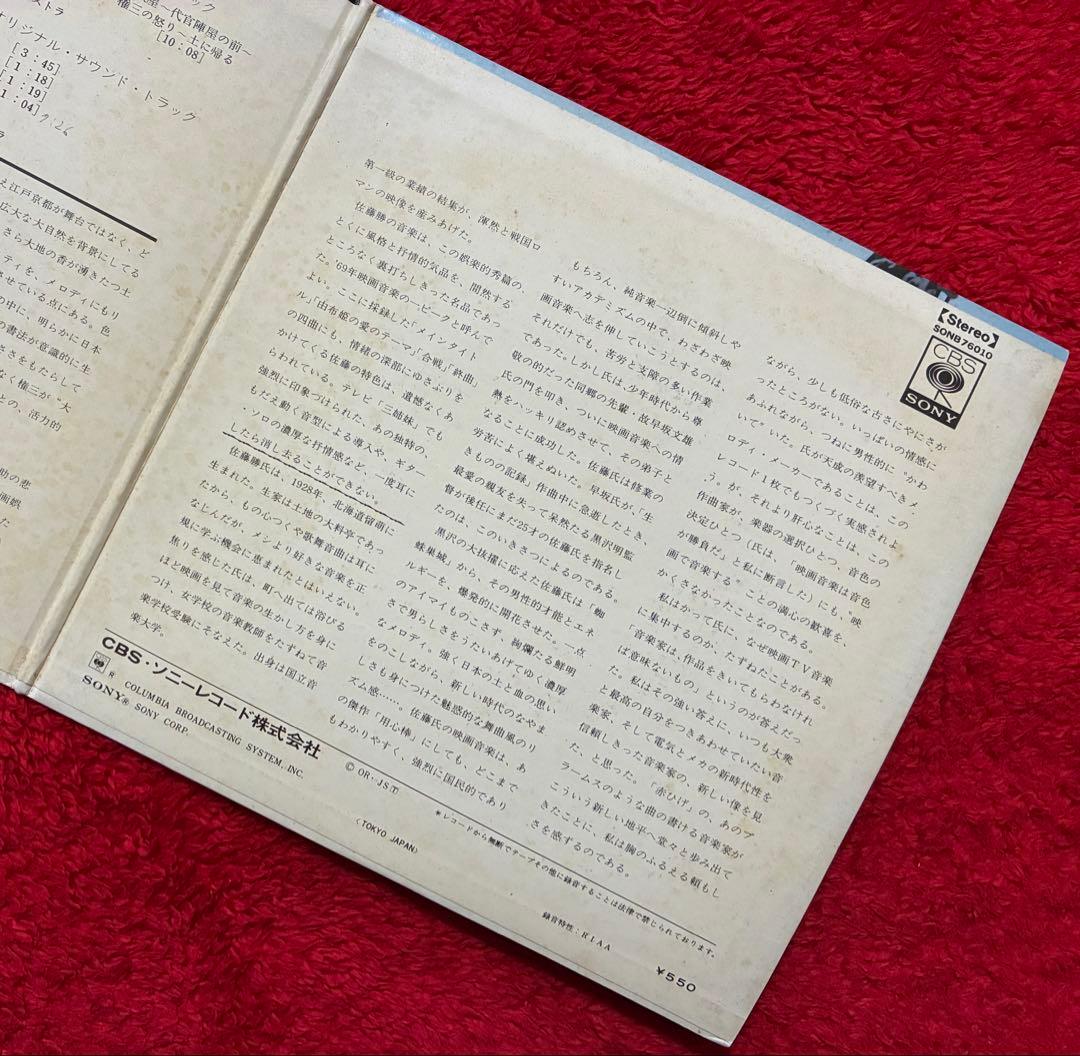 ック
ストラ
屋～代官陣屋の前～
権三の怒り～土に帰る
[10：08]
オリジナル・サウンド・トラック
[3：45]
[1：18]
[1：19]
1：04]
9:26
ラ
え江戸京都が舞台ではなく、ど
広大な大自然を背景にしてる
さら大地の香が湧きたつ土
ティを、メロディにもり
させている点にある。色
の中に、明らかに日本
の書法が意識的に生
ささをもたらして
なく権三が“大
との、活力的
助の悲
画娯
た
第一級の業績の結集が、渾然と戦国ロ
マンの映像を産みあげた。
佐藤勝の音楽は、この娯楽的秀篇の、
とくに風格と抒情的気品を、間然する
ところなく裏打ちしきった名品であっ
た。'69年映画音楽の一ピークと呼んで
よい。ここに採録した「メインタイト
ル」「由布姫の愛のテーマ」「合戦」「終曲」
の四曲にも、情緒の深部にゆさぶりを
かけてくる佐藤の特色は、遺憾なくあ
らわれている。テレビ「三姉妹」でも
強烈に印象つけられた、あの独特の、
もだえ動く音型による導入や、ギター
・ソロの濃厚な抒情感など、一度耳に
したら消し去ることができない。
佐藤勝氏は、1928年、北海道留萌に
生まれた。生家は土地の大料亭であっ
たから、もの心つくや歌舞音曲は耳に
なじんだが、メシより好きな音楽を正
規に学ぶ機会に恵まれたとはいえない。
焦りを感じた氏は、町へ出ては浴びる
ほど映画を見て音楽の生かし方を身に
つけ、女学校の音楽教師をたずねて音
楽学校受験にそなえた。出身は国立音
楽大学。
もちろん、純音楽一辺倒に傾斜しや
すいアカデミズムの中で、わざわざ映
画音楽へ志を伸していこうとするのは、
それだけでも、苦労と支障の多い作業
であった。しかし氏は、少年時代から尊
敬の的だった同郷の先輩・故早坂文雄
氏の門を叩き、ついに映画音楽への情
熱をハッキリ認めさせて、その弟子と
なることに成功した。佐藤氏は修業の
労苦によく堪えぬいた。早坂氏が、「生
きものの記録」作曲中に急逝したとき、
最愛の親友を失って呆然たる黒沢明監
督が後任にまだ25才の佐藤氏を指名し
たのは、このいきさつによるのである。
黒沢の大抜擢に応えた佐藤氏は「蜘
蛛巣城」から、その男性的才能とエネ
ルギーを、爆発的に開花させた。一点
のアイマイものこさず、絢爛たる鮮明
さで男らしさをうたいあげてゆく濃厚
なメロディ。強く日本の土と血の思い
をのこしながら、新しい時代のなやま
しさも身につけた魅惑的な舞曲風のリ
ズム感……。佐藤氏の映画音楽は、あ
の傑作「用心棒」にしても、どこまで
もわかりやすく、強烈に国民的であり
ながら、少しも低俗な古さにやにさが
ったところがない。いっぱいの情感に
あふれながら、つねに男性的に“かわ
いて”いた。氏が天成の羨望すべき、メ
ロディ・メーカーであることは、この
レコード1枚でもつくづく実感されよ
う。が、それより肝心なことは、この
作曲家が、楽器の選択ひとつ、音色の
決定ひとつ（氏は、「映画音楽は音色
が勝負だ」と私に断言した）にも、“映
画で音楽する”ことの満心の歓喜を、
かくさなかったことなのである。
私はかって氏に、なぜ映画TV音楽
に集中するのか、たずねたことがある。
「音楽家は、作品をきいてもらわなけれ
ば意味ないもの」というのが答えだっ
た。私はその強い答えに、いつも大衆
と最高の自分をつきあわせていたい音
楽家、そして電気とメカの新時代性を
信頼しきった音楽家の、新しい像を見
た、と思った。「赤ひげ」の、あのブ
ラームスのような曲の書ける音楽家が
こういう新しい地平へ堂々と歩み出て
きたことに、私は胸のふるえる頼もし
さを感ずるのである。
【Stereo】
SONB76010
CBS
SONY
CBS・ソニーレコード株式会社
® COLUMBIA BROADCASTING SYSTEM, INC.
SONY® SONY CORP.
© OR.・JSⓉ
(TOKYO JAPAN)
＊レコードから無断でテープその他に録音することは法律で禁じられております。
録音特性：RIAA
¥550